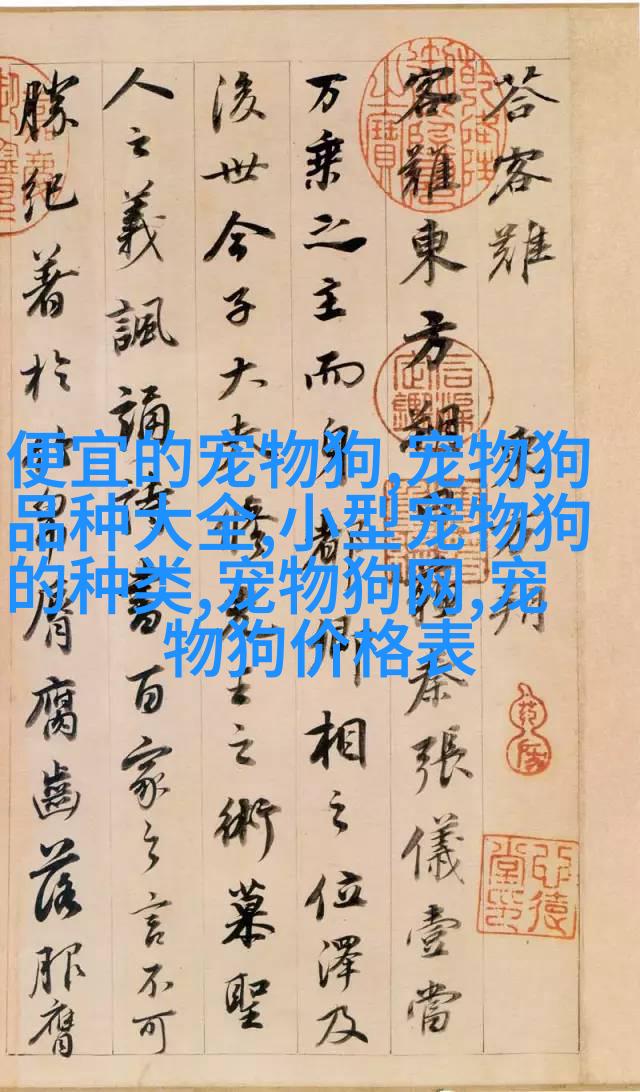 荅客難 東方朔
客難東方朔曰蘇秦張儀壹當
万乘之主而身都卿相之位澤及
後世今子大夫脩先王之術慕聖
人之義諷誦詩書百家之言不可
勝紀著於竹帛脣腐齒落服膺
便宜的宠物狗,宠物狗
品种大全,小型宠物狗
的种类,宠物狗网,宠
物狗价格表